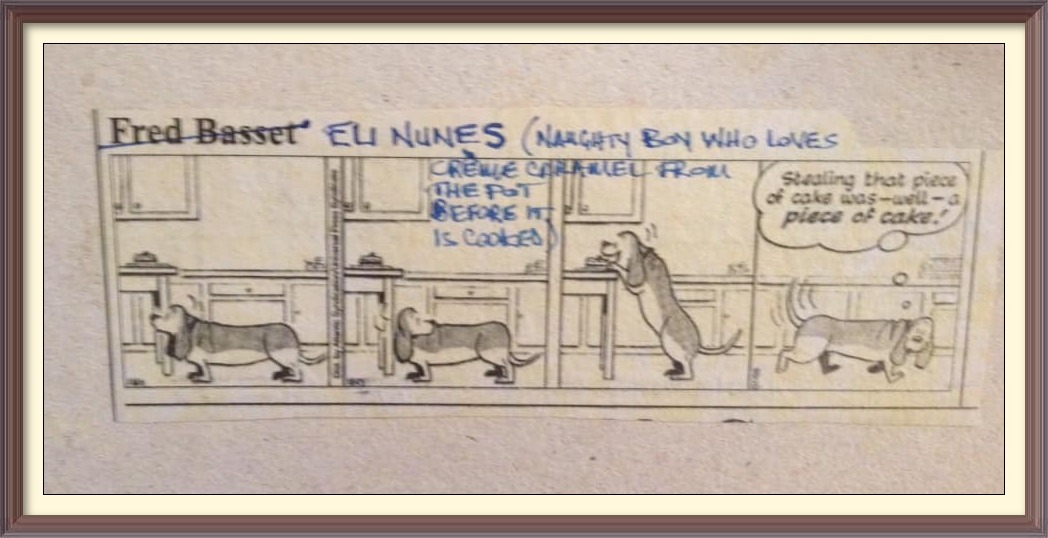 Fred Basset ELI NUNES (NAUGHTY BOY WHO LOVES
CRÈME CARAMEL FROM
THE POT
BEFORE IT
IS COOKED)
Stealing that piece
of cake was–well–a
piece of cake!